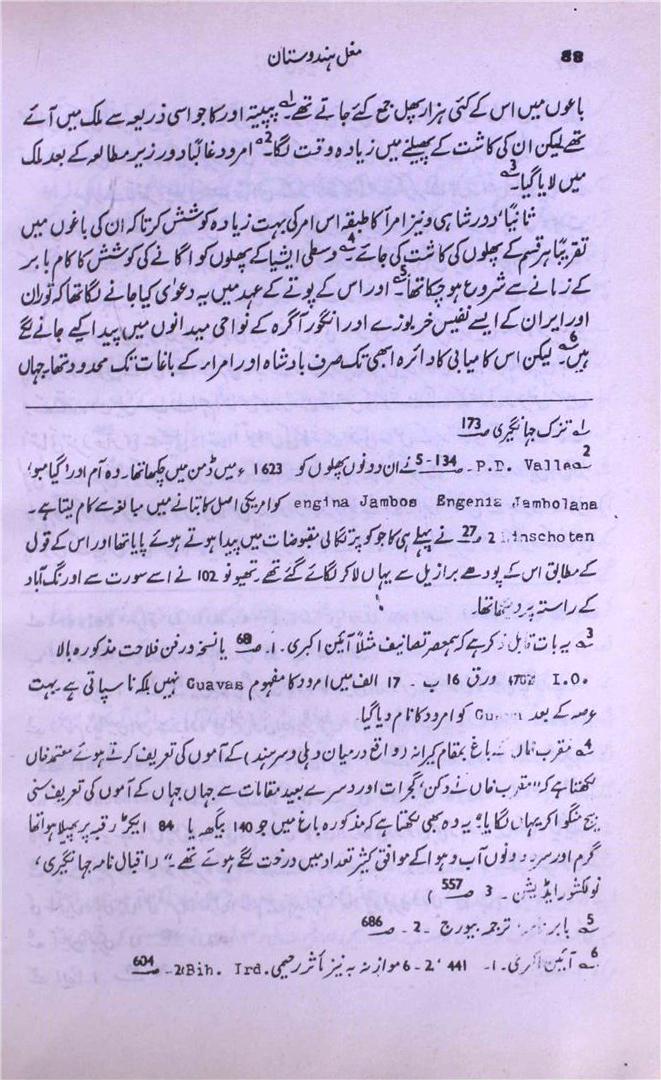 88
مغل ہندوستان
باغوں میں اس کے کئی ہزار پھل جمع کئے جاتے تھے۔1 پپیتہ اور کاجو اسی ذریعہ سے ملک میں آئے
تھے لیکن ان کی کاشت کے پھیلنے میں زیادہ وقت لگا۔2 امرود غالباً دور زیر مطالعہ کے بعد ملک
میں لایا گیا۔3
ثانیاً، دور شاہی و نیز امرأ کا طبقہ اس امر کی بہت زیادہ کوشش کرتا کہ ان کی باغوں میں
تقریباً ہر قسم کے پھلوں کی کاشت کی جائے۔4 وسطی ایشیا کے پھلوں کو اگانے کی کوشش کا کام بابر
کے زمانے سے شروع ہو چکا تھا۔5 اور اس کے پوتے کے عہد میں یہ دعویٰ کیا جانے لگا تھا کہ توران
اور ایران کے ایسے نفیس خربوزے اور انگور آگرہ کے نواحی میدانوں میں پیدا کیے جانے لگے
ہیں۔6 لیکن اس کامیابی کا دائرہ ابھی تک صرف بادشاہ اور امراء کے باغات تک محدود تھا، جہاں
1۔ تزک جہانگیری صـ 173
2۔ P.D. Valle۔ 134-5 نے ان دونوں پھلوں کو 1623ء میں ڈمن میں چکھا تھا۔ وہ آم اور 'گیامبو'
engina Jambos Engenia Jambolana کو امریکی اصل کا بتانے میں مبالغہ سے کام لیتا ہے۔
Linschoten 2 صـ 27 نے پہلے ہی کاجو کو پرتگالی مقبوضات میں پیدا ہوتے ہوئے پایا تھا اور اس کے قول
کے مطابق اس کے پودے برازیل سے یہاں لا کر لگائے گئے تھے۔ تھیونو 102 نے اسے سورت سے اورنگ آباد
کے راستہ پر دیکھا تھا۔
3۔ یہ بات قابل ذکر ہے کہ ہمعصر تصانیف مثلاً آئین اکبری۔ 1۔ صـ 68 یا نسخہ در فن فلاحت مذکورہ بالا
I.O. ورق 16 ب۔ 17 الف میں امرود کا مفہوم Guavas نہیں بلکہ ناسپاتی ہے بہت
عرصہ کے بعد کو امرود کا نام دیا گیا۔
4۔ مقرب خاں کے باغ بمقام کیرانہ (واقع درمیان دہلی و سرہند) کے آموں کی تعریف کرتے ہوئے معتمد خاں
لکھتا ہے کہ "مقرب خاں نے دکن، گجرات اور دوسرے بعید مقامات سے جہاں جہاں کے آموں کی تعریف سنی
بیج منگوا کر یہاں لگایا۔" یہ وہ بھی لکھتا ہے کہ مذکورہ باغ میں جو 140 بیگھہ یا 84 ایکڑ رقبہ پر پھیلا ہوا تھا
گرم اور سرد دونوں آب و ہوا کے موافق کثیر تعداد میں درخت لگے ہوئے تھے۔" (اقبال نامہ جہانگیری،
نولکشور ایڈیشن۔ 3 صـ 557)
5۔ بابر نامہ، ترجمہ بیورج۔ 2۔ صـ 686
6۔ آئین اکبری۔ 1۔ 441، 2-6 موازنہ بہ نیز مآثر رحیمی، Bih. Ird. 2۔ صـ 604